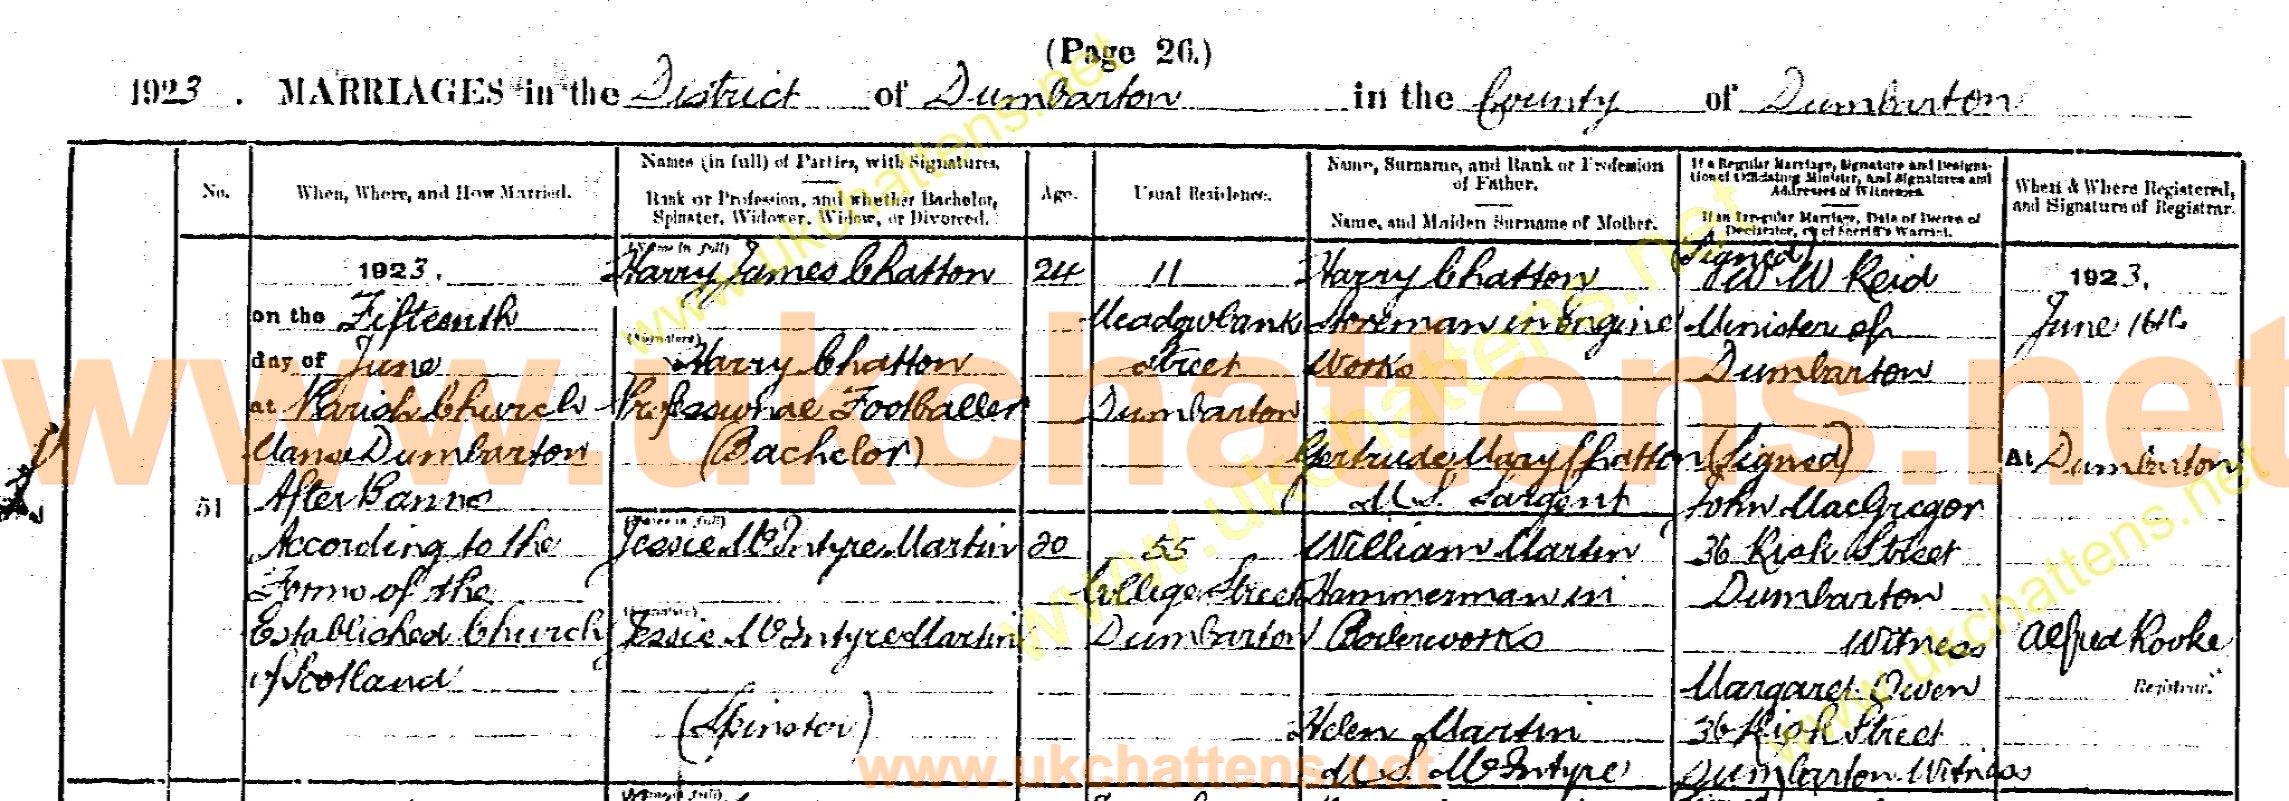 (Page 26.)
1923. MARRIAGES in the District of Dumbarton in the County of Dumbarton
No.
When, Where, and How Married.
Names (in full) of Parties, with Signatures.
Rank or Profession, and whether Bachelor,
Spinster, Widower, Widow, or Divorced.
Age.
Usual Residence.
Name, Surname, and Rank or Profession
of Father.
Name, and Maiden Surname of Mother.
If a Regular Marriage, Signature and Designa-
tion of Officiating Minister, and Signatures and
Addresses of Witnesses.
If an Irregular Marriage, Date of Decree of
Declarator, or of Sheriff's Warrant.
When & Where Registered,
and Signature of Registrar.
51
1923.
on the Fifteenth
day of June
at Parish Church
Manse Dumbarton
After Banns
According to the
Forms of the
Established Church
of Scotland
(Name in full)
Harry James Chatton
(Signature)
Harry Chatton
Professional Footballer
(Bachelor)
(Name in full)
Jessie McIntyre Martin
(Signature)
Jessie McIntyre Martin
(Spinster)
24
20
11
Meadowbank
Street
Dumbarton
55
College Street
Dumbarton
Harry Chatton
Storeman in Engine
Works
Gertrude Mary Chatton
M.S. Sargent
William Martin
Hammerman in
Boilerworks
Helen Martin
M.S. McIntyre
(Signed)
W. W. Reid
Minister of
Dumbarton
(Signed)
John MacGregor
36 Risk Street
Dumbarton
Witness
Margaret Owen
36 Risk Street
Dumbarton Witness
1923.
June 16th
At Dumbarton
Alfred Rooke
Registrar.
www.ukchattens.net
www.ukchattens.net
www.ukchattens.net
www.ukchattens.net
www.ukchattens.net